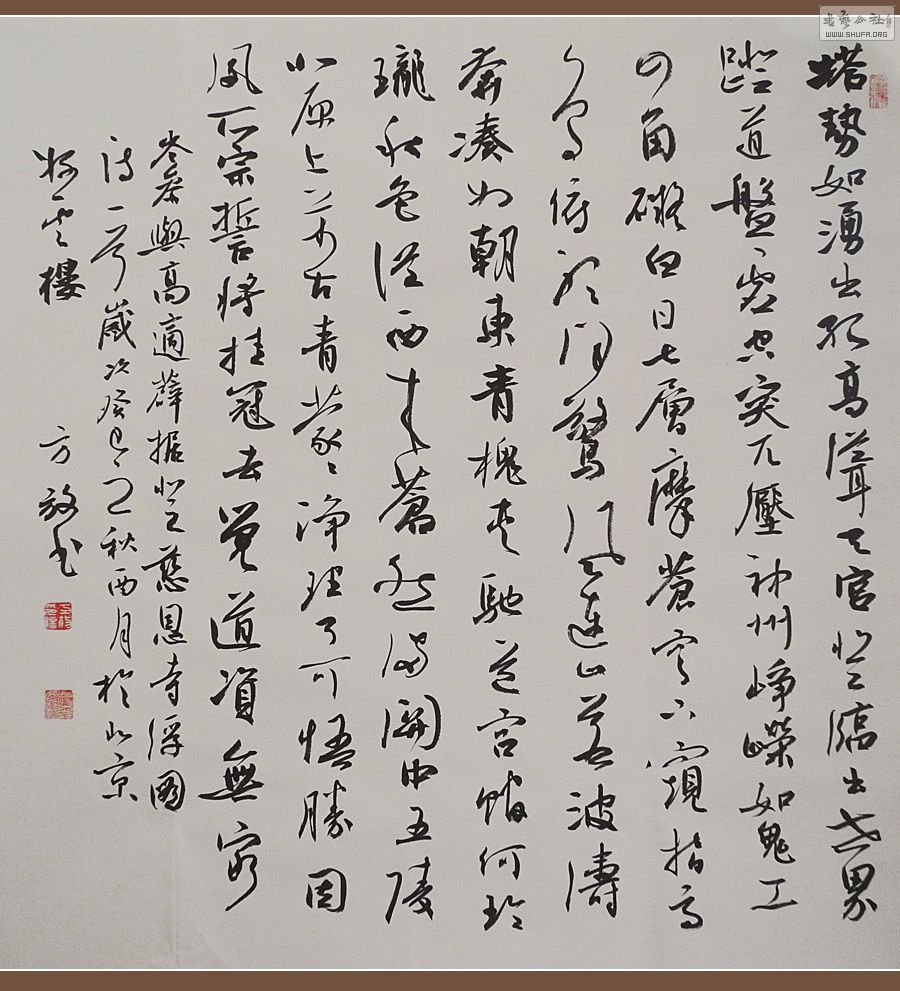 塔勢如湧出孤高聳天宮登臨出世界
蹬道盤虛空突兀壓神州崢嶸如鬼工
四角礙白日七層摩蒼穹下窺指高
鳥俯聽聞驚風連山若波濤
奔湊似朝東青槐夾馳道宮館何玲
瓏秋色從西來蒼然滿關中五陵
北原上萬古青蒙〻淨理了可悟勝因
夙所宗誓將挂冠去覺道資無窮
岑參與高適薛據登慈恩寺浮圖
詩一首歲次癸巳秋酉月於北京
雲樓 方放書
書藝公社
WWW.SHUFA.ORG